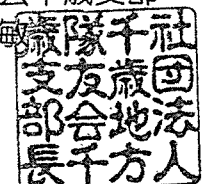 社団法人
千歳地方
隊友会千
歳支部長
敏